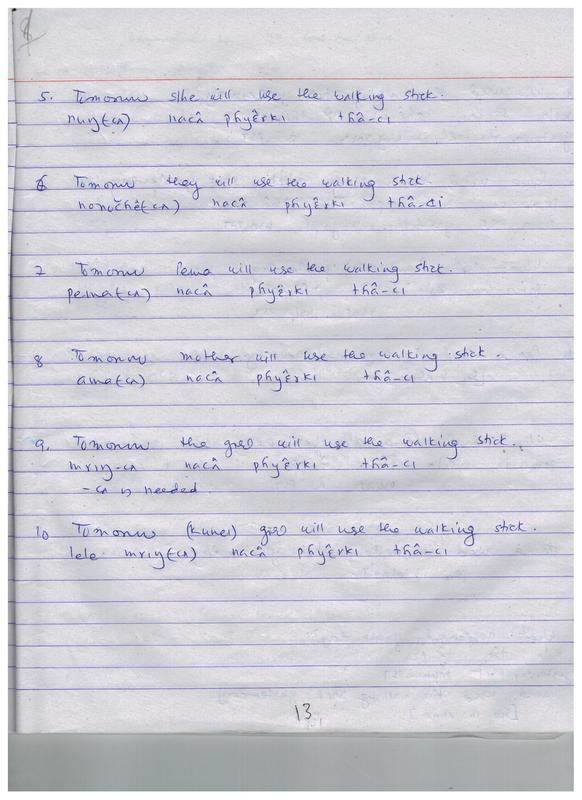 5. Tomorrow s/he will use the walking stick.
nuŋ(cʌ) nacʌ̂ pɦyɛ̂rkɪ tɦâ-cɪ
6 Tomorrow they will use the walking stick.
nacʌ̂ pɦyɛ̂rkɪ tɦâ-cɪ
7 Tomorrow Pema will use the walking stick.
pema(cʌ) nacʌ̂ pɦyɛ̂rkɪ tɦâ-cɪ
8 Tomorrow mother will use the walking stick.
ama(cʌ) nacʌ̂ pɦyɛ̂rkɪ tɦâ-cɪ
9. Tomorrow the girl will use the walking stick.
mrɪŋ-cʌ nacʌ̂ pɦyɛ̂rkɪ tɦâ-cɪ
-cʌ is needed
10 Tomorrow (Kunei) girl will use the walking stick.
lele mrɪŋ(cʌ) nacʌ̂ pɦyɛ̂rkɪ tɦâ-cɪ
13